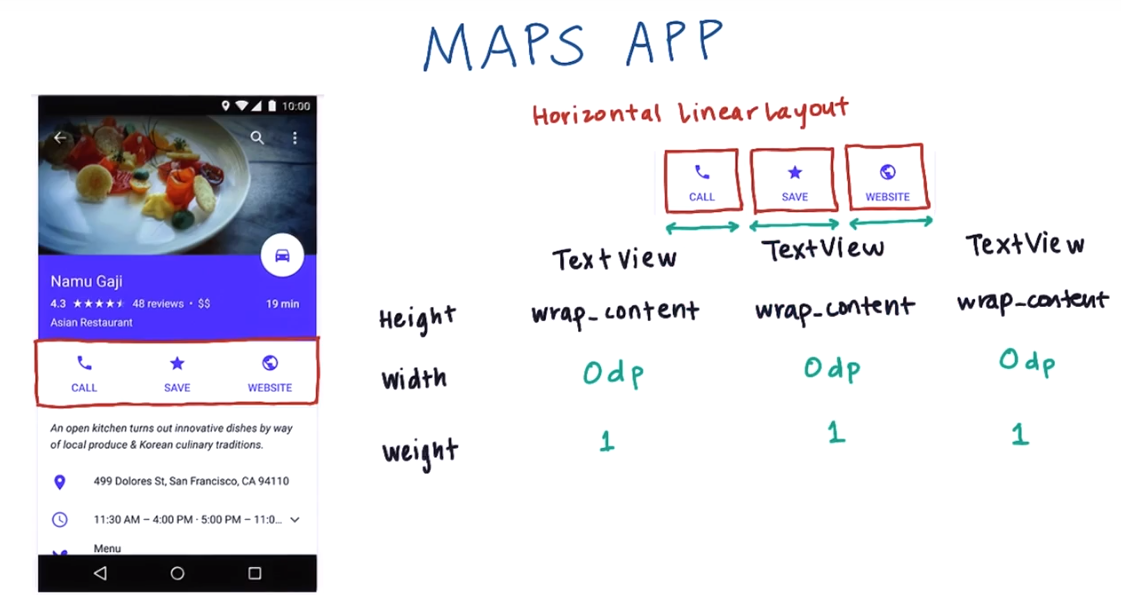 MAPS APP
10:00
Namu Gaji
4.3 ★★★★★ 48 reviews · $$ 19 min
Asian Restaurant
CALL SAVE WEBSITE
An open kitchen turns out innovative dishes by way
of local produce & Korean culinary traditions.
499 Dolores St, San Francisco, CA 94110
11:30 AM – 4:00 PM · 5:00 PM – 11:0...
Menu
Horizontal LinearLayout
CALL SAVE WEBSITE
TextView TextView TextView
Height wrap_content wrap_content wrap_content
Width 0dp 0dp 0dp
weight 1 1 1